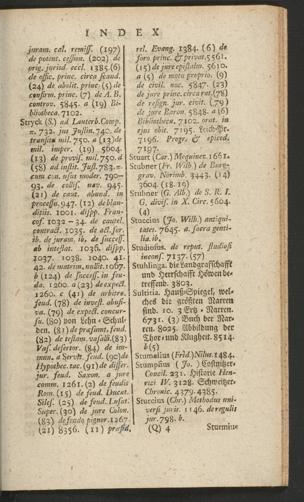 INDEX
juram. cal. remiss. (197)
de potent. cession. (202) de
orig. jurisd. eccl. 1385 (6)
de offic. princ. circa
(24) de abolit. princ. (5) de
confirm. princ. (7) de A. B.
controv. 5845. a (19) Bi-
bliotheca. 7102.
Stryck (S.) ad Lauterb. Comp.
n. 732. jus Justin. 740. de
transitu mil. 750. a (13) de
mil. imper. (19) 5604.
(13) de provis. mil. 750. a
(58) ad instit. Just. 783. a
cum usu moder. 790-
93. de collis. nav. 945.
(21) de caut. abund. in
processu. 947. (12) de blan-
ditiis. 1001. dispp. Fran-
cof. 1032-34. de cautel.
contract. 1035. de act. for.
ib. de juram. ib. de success.
ab intestat. 1036. dispp.
1037. 1038. 1040. 41.
42. de matrim. nullit. 1067.
b (124) de success. in feu-
da. 1260. a (23) de expect.
1260. c. (41) de arbitro.
feud. (78) de invest. abusi-
va. (79) de expect. concur-
su. (80) von Lehn-Schul-
den. (81) de præsumt. feud.
(82) de restam. vasalli. (83)
Vas. desertor. (84) de im-
mun. a Servit. feud. (90) de
Hypothec. tac. (91) de differ.
jur. feud. Saxon. a jure
comm. 1261. (2) de feudis
Rom. (15) de feud. Ducat.
Siles. (25) de feud. Lusat.
Super. (30) de jure Colon.
(83) de feudo pignor. 1267.
(21) 8356. (11) præsid.
rel. Evang. 1384. (6) de
foro princ. & privat. 5561.
(15) de jure epistalm. 5610.
a (5) de motu proprio. (9)
de civil. noc. 5847. (23)
de jure princ. circa rat. (78)
de resign. jur. civit. (79)
de jure Baron. 5848. a (16)
Bibliotheca. 7102. orat. in
ejus obit. 7195. Leich-Pr.
7196. Progr. & epiced.
7197.
Stuart (Car.) Mequinez. 1661.
Stubner (Fr. Wilh.) de Burg-
grav. Norimb. 3443. (14)
3604. (18. 19)
Stubner (G. Alb.) de S. R. I.
G. divis. in X. Circ. 5604.
(4)
Stuccius (Jo. Wilh.) antiqui-
tates. 7645. a. sacra genti-
lia. ib.
de reput. studiosi
inconf. 7137. (57)
Stuhlinga. die Landgrafschafft
und Herrschafft Höwen be-
treffend. 3803.
Stultitia. Hauß-Spiegel, wel-
ches die größten Narren
sind. 10. 3 Ertz-Narren.
6731. (3) Buch der Nar-
ren. 8025. Abbildung der
Thor- und Klugheit. 8514.
b (5)
Stumelius (Frid.) Nilus. 1484.
Stumpius (Jo.) Costnitzer-
Concil. 231. Historie Hen-
rici IV. 3128. Schweitzer-
Chronic. 4379. 4385.
Sturcius (Chr.) Methodus uni-
versi juris. 1146. de regulis
jur. 798. b.
(Q) 4 Sturmius